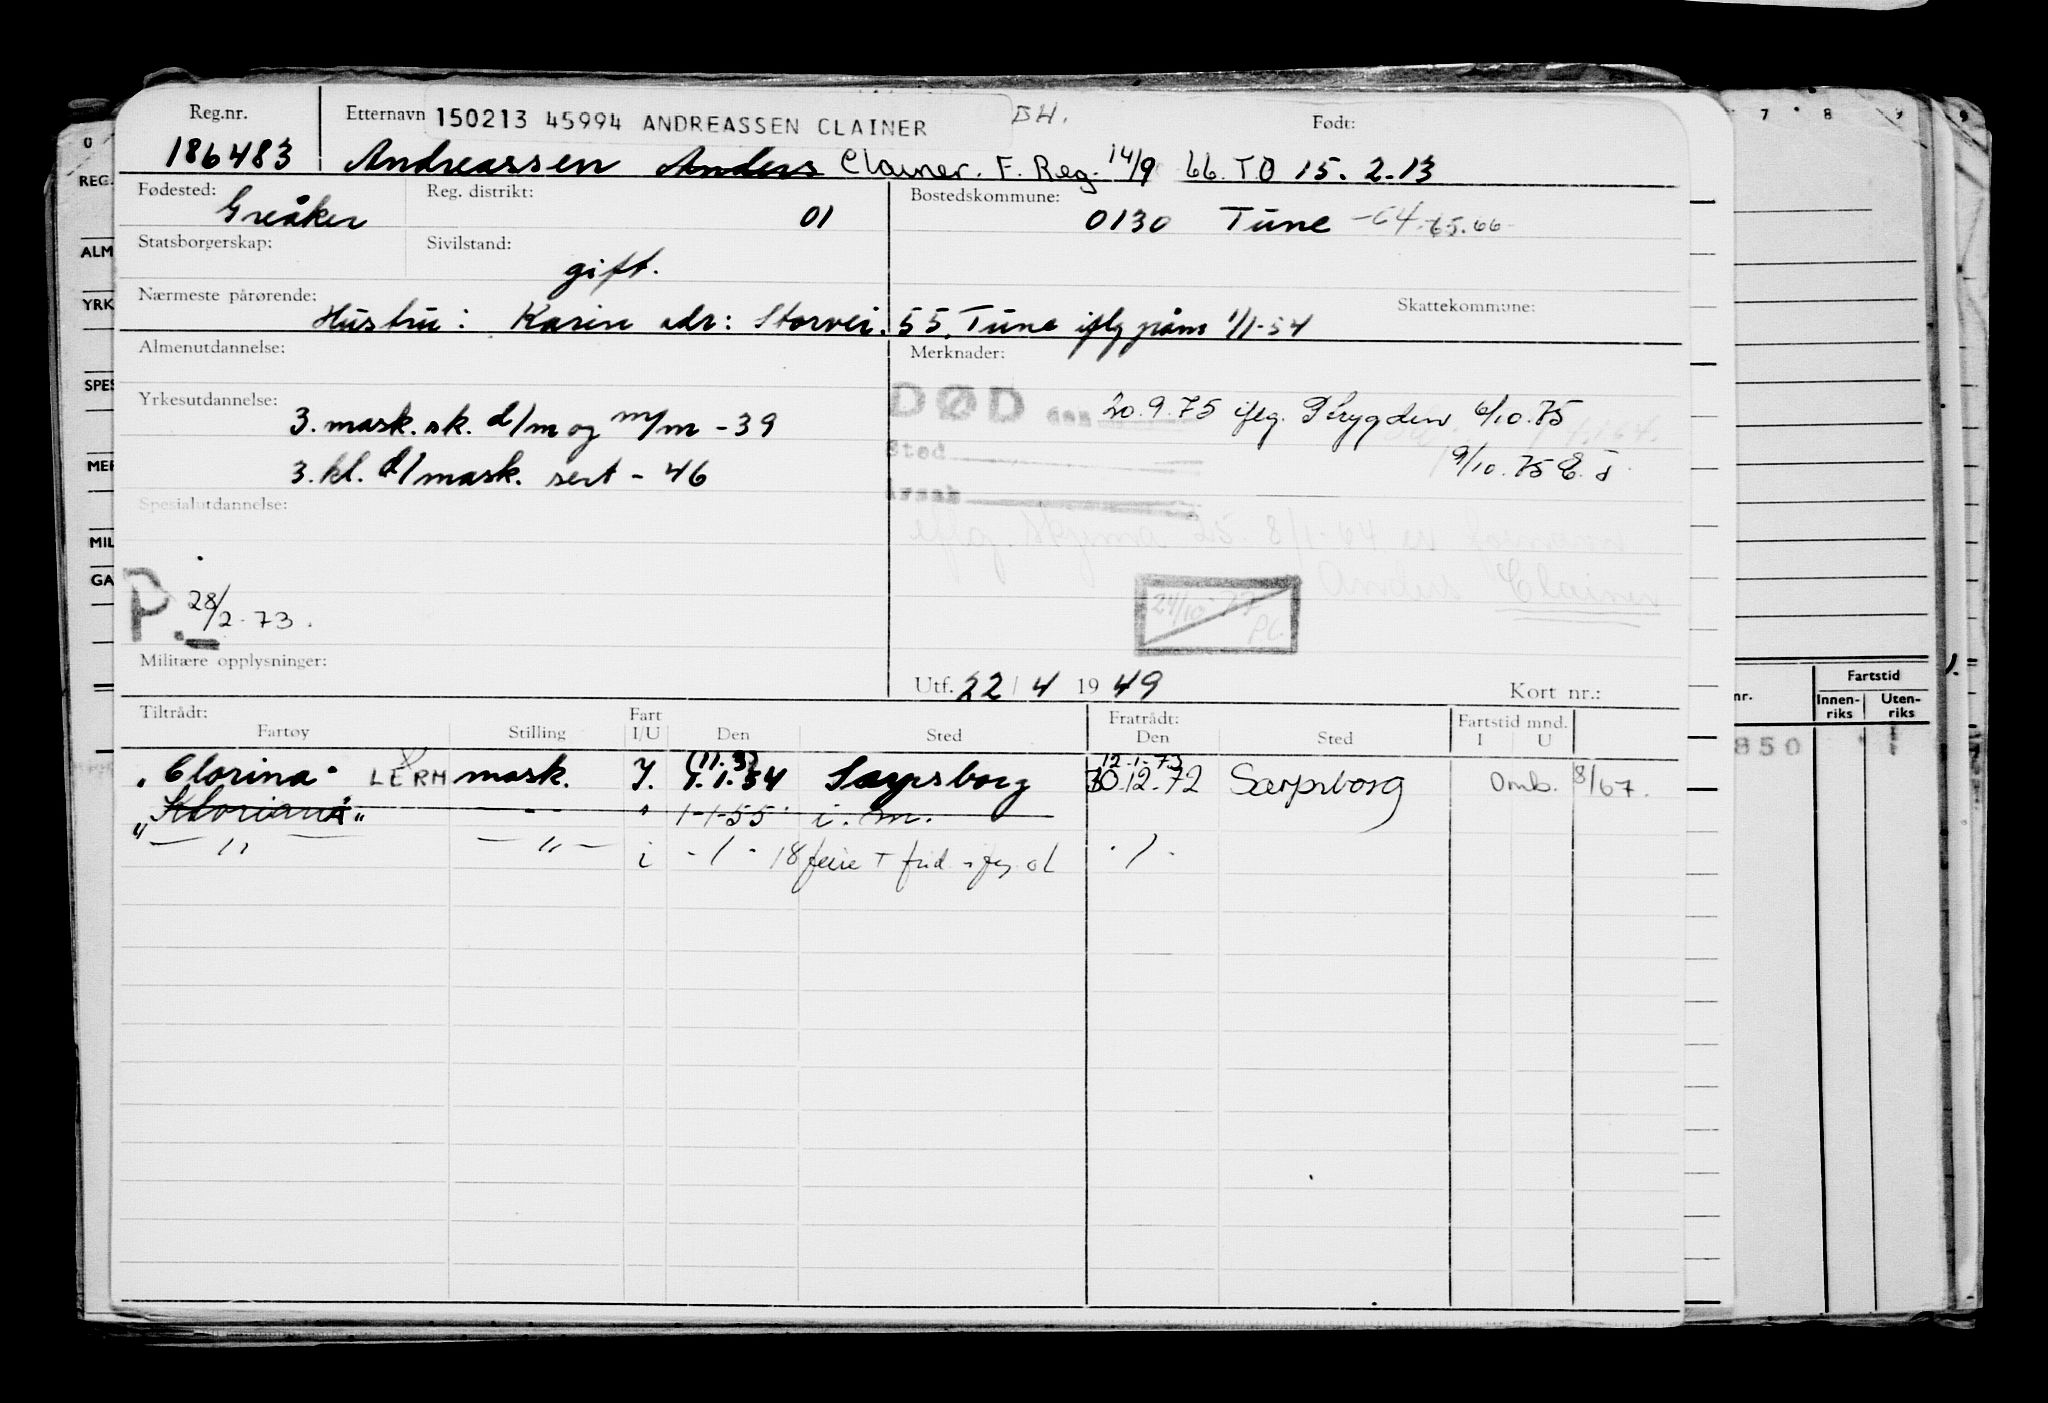 Reg.nr. Etternavn 150213 45994 ANDREASSEN CLAINER Født:
186483 Andreassen Anders Clainer. F. Reg. 14/9 66. TO 15. 2. 13
Fødested: Reg. distrikt: Bostedskommune:
Greåker 01 0130 Tune -64. 65. 66
Statsborgerskap: Sivilstand:
gift.
Nærmeste pårørende: Skattekommune:
Hustru: Karin adr: Storvei. 55, Tune iflg 1/1-54
Almenutdannelse: Merknader:
Yrkesutdannelse: DØD den 20.9.75 iflg. Trygden 6/10.75
3. mask.sk. d/m og m/m - 39
Sted 9/10.75
3. kl. d/mask. sert - 46
Årsak
Spesialutdannelse:
iflg. 25. 8/1-64 er fornavn
Anders Clainer
P. 28/2-73.
24/10-73
Militære opplysninger:
Utf. 22/4 1949 Kort nr.:
Tiltrådt: Fart Fratrådt: Fartstid mnd.
Fartøy Stilling I/U Den Sted Den Sted I U
(11.3) 12-1-73
"Clorina" LERM mask. I. 1.1.54 Sarpsborg 30.12.72 Sarpsborg Omb. 8/67.
-"- " 1-1-55 i. m.
-"- -"- i -/- 18 ferie + frid ./.
0
REG.
ALM
YRK
SPES
MER
MIL
GA
7 8 9
nr. Fartstid
Innen-riks Uten-riks
850